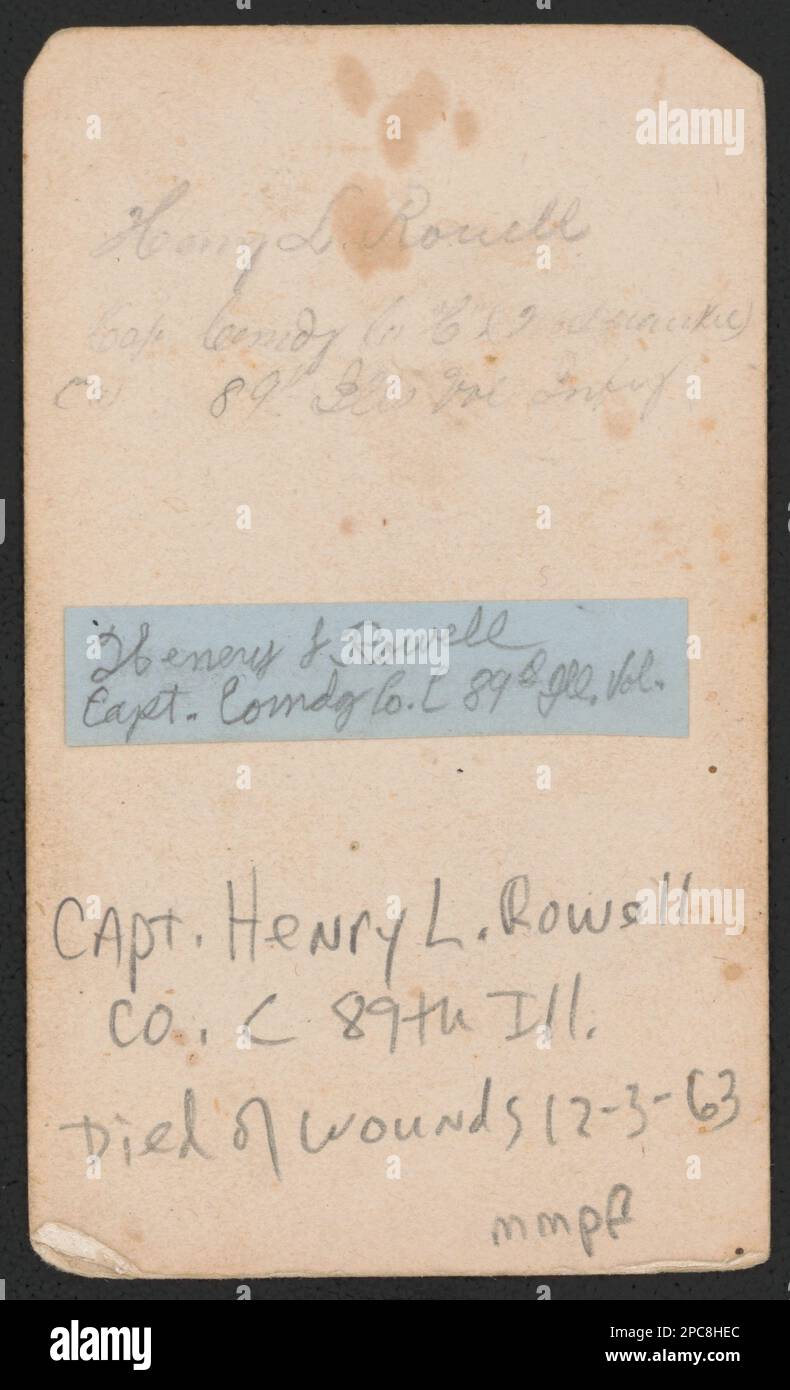 alamy
Henry L. Rowell
Cap Comdg Co
89th Ills Vol Infy
Henery L Rowell
Capt. Comdg Co. C 89th Ill. Vol.
alamy
CApt. Henry L. Rowell
CO. C 89th Ill.
Died of wounds 12-3-63
mmpf
alamy
Image ID: 2PC8HEC
www.alamy.com